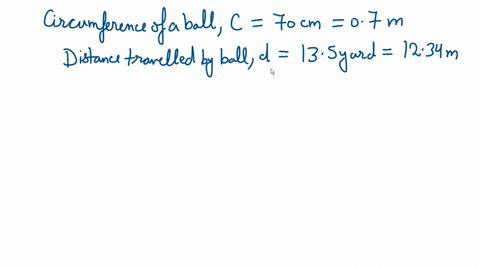 Circumference of a ball, C = 70 cm = 0.7 m
Distance travelled by ball, d = 13.5 yard = 12.34 m